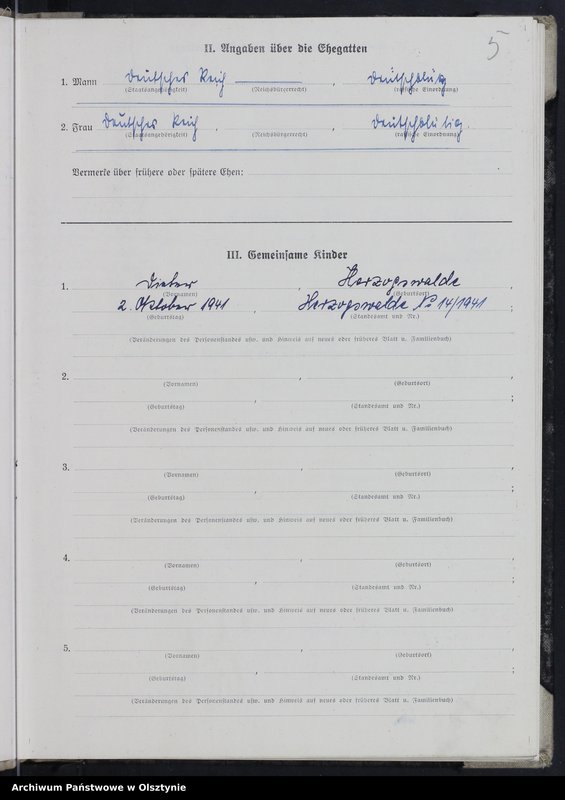 5
II. Angaben über die Ehegatten
1. Mann Deutsches Reich , deutschblütig
(Staatsangehörigkeit) (Reichsbürgerrecht) (rassische Einordnung)
2. Frau Deutsches Reich , , deutschblütig.
(Staatsangehörigkeit) (Reichsbürgerrecht) (rassische Einordnung)
Vermerke über frühere oder spätere Ehen:
III. Gemeinsame Kinder
1. Dieter , Herzogswalde
(Vornamen) (Geburtsort)
2. Oktober 1941 , Herzogswalde No 14/1941 ;
(Geburtstag) (Standesamt und Nr.)
(Veränderungen des Personenstandes usw. und Hinweis auf neues oder früheres Blatt u. Familienbuch)
2. , ,
(Vornamen) (Geburtsort)
, ;
(Geburtstag) (Standesamt und Nr.)
(Veränderungen des Personenstandes usw. und Hinweis auf neues oder früheres Blatt u. Familienbuch)
3. , ,
(Vornamen) (Geburtsort)
, ;
(Geburtstag) (Standesamt und Nr.)
(Veränderungen des Personenstandes usw. und Hinweis auf neues oder früheres Blatt u. Familienbuch)
4. , ,
(Vornamen) (Geburtsort)
, ;
(Geburtstag) (Standesamt und Nr.)
(Veränderungen des Personenstandes usw. und Hinweis auf neues oder früheres Blatt u. Familienbuch)
5. , ,
(Vornamen) (Geburtsort)
, ;
(Geburtstag) (Standesamt und Nr.)
(Veränderungen des Personenstandes usw. und Hinweis auf neues oder früheres Blatt u. Familienbuch)
Archiwum Państwowe w Olsztynie